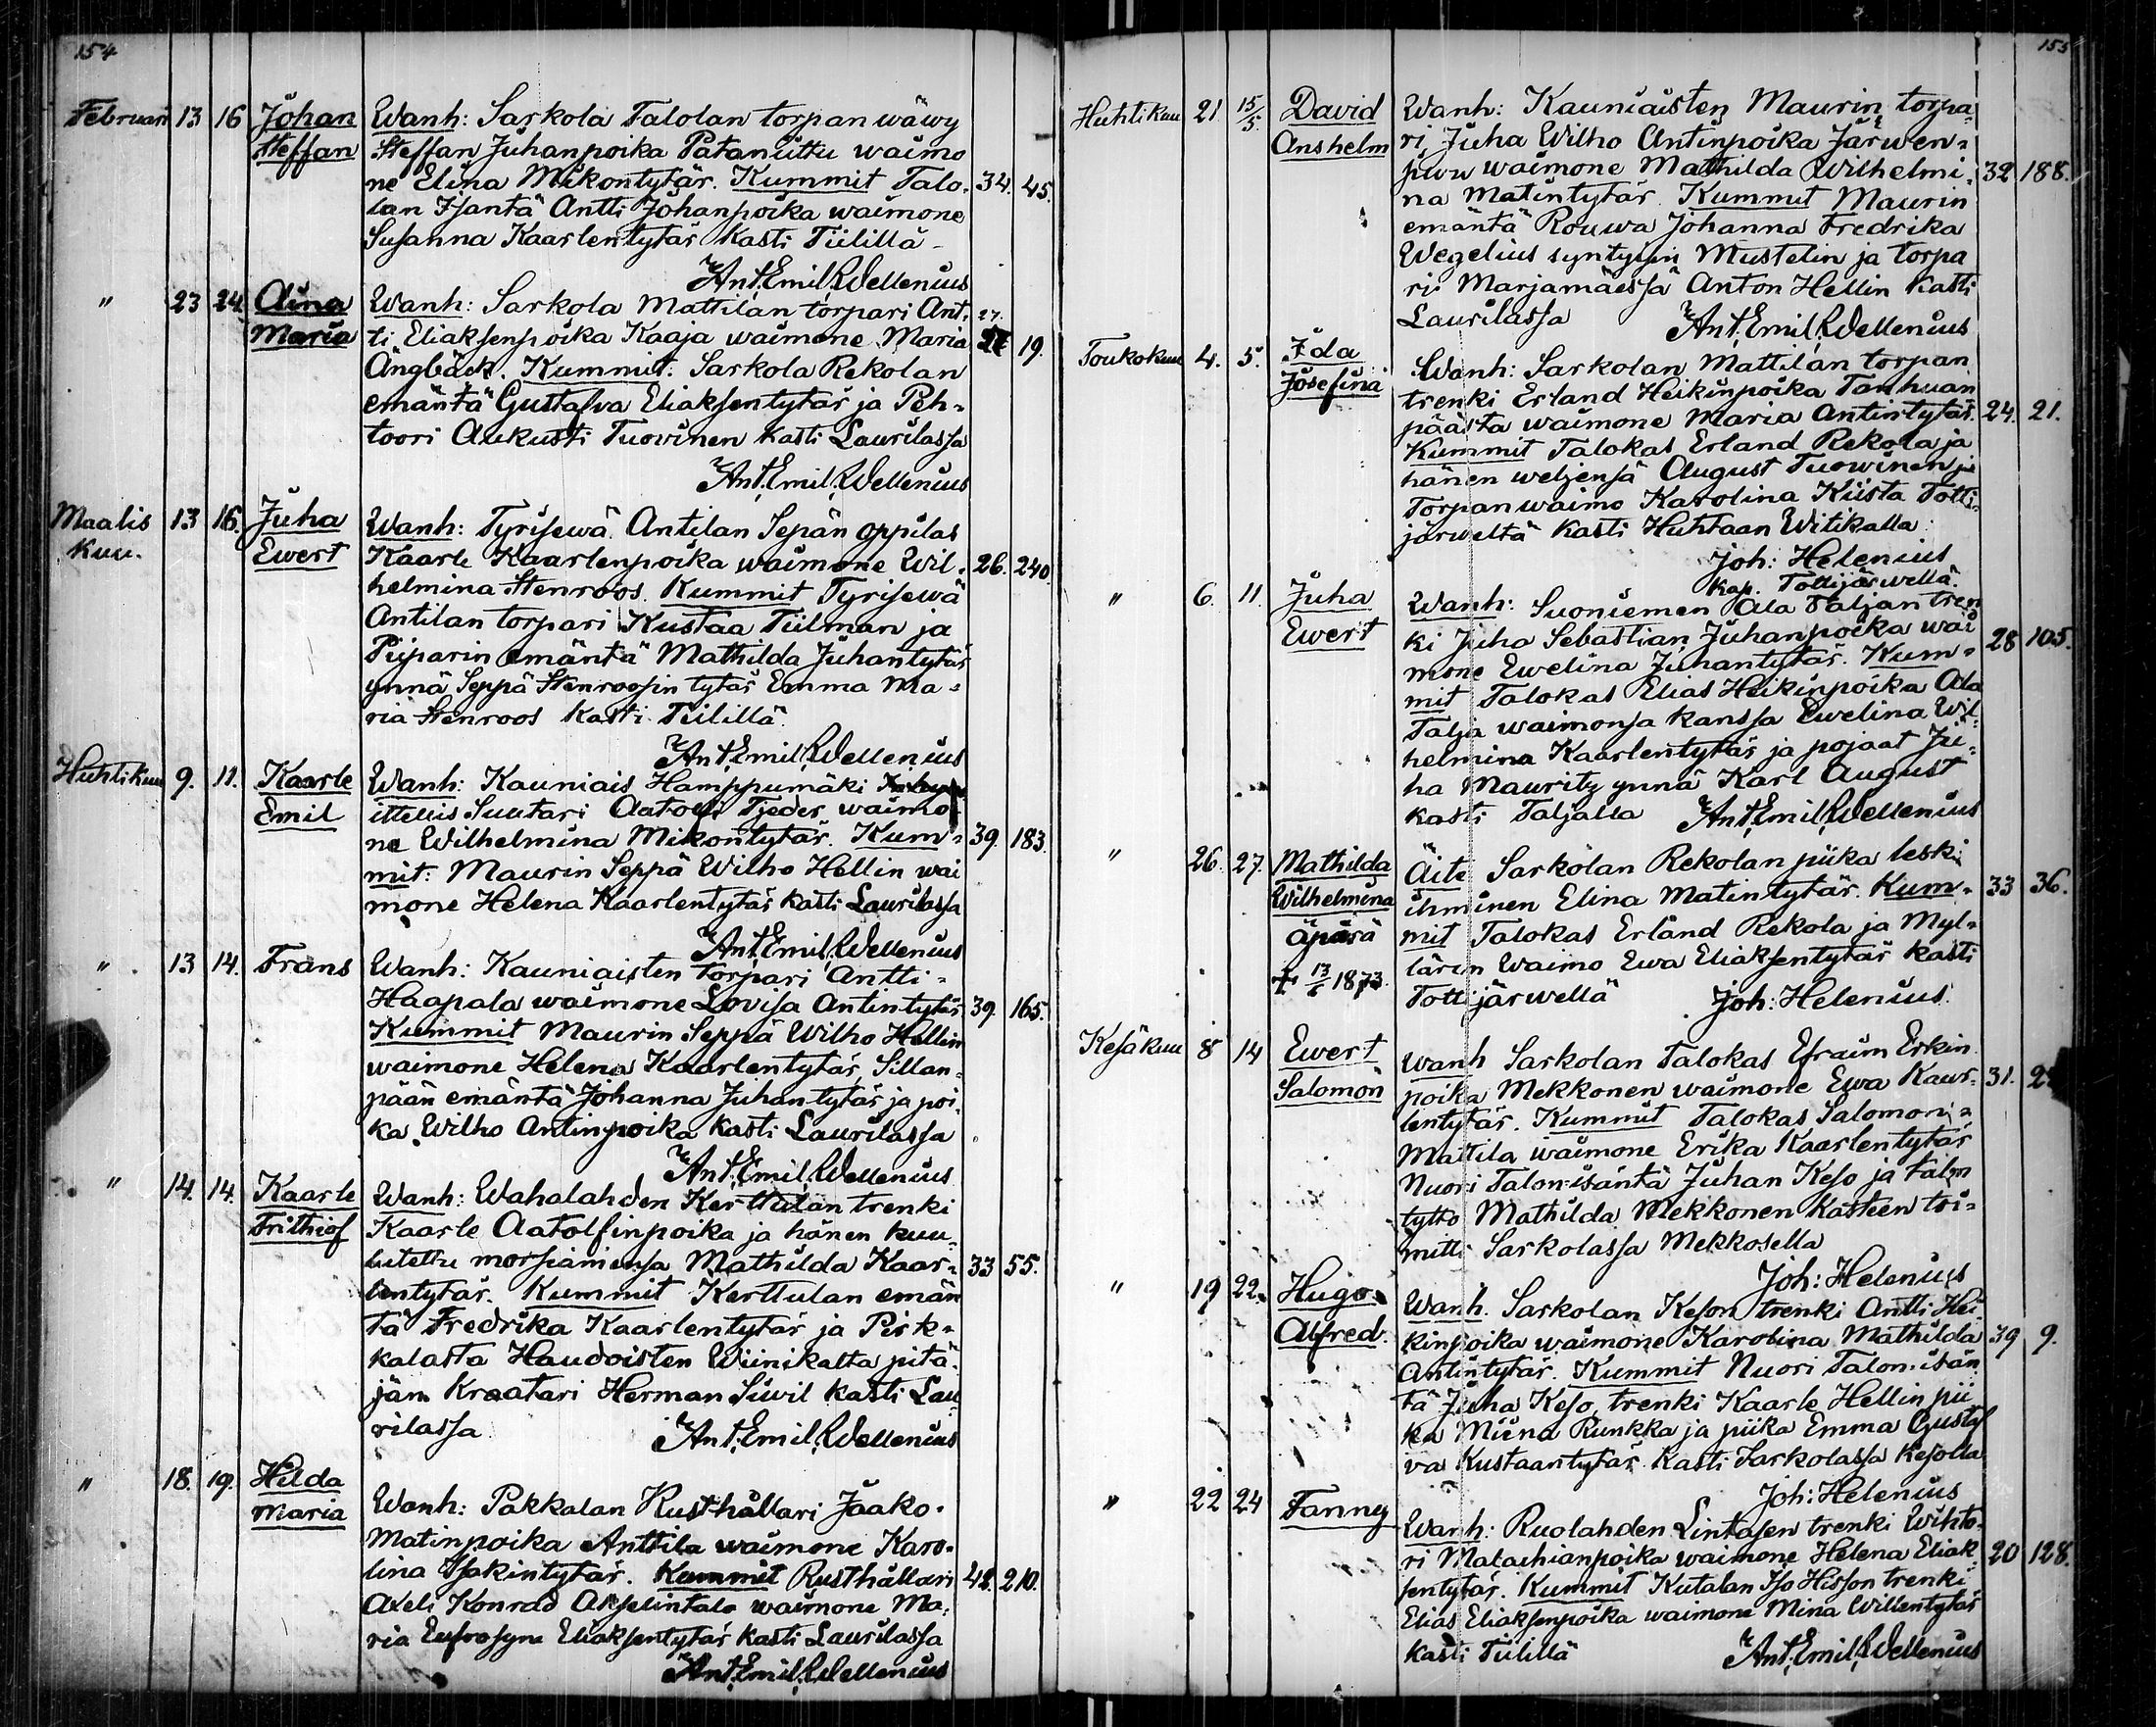 154
Februari 13 16 Johan Wanh: Sarkola Talolan torpan wäwy
Steffan Steffan Juhanpoika Patanuttu waimo
ne Elina Mikontytär. Kummit Talo- 34. 45.
lan Isäntä Antti Johanpoika waimone
Susanna Kaarlentytär Kasti Tiilillä
Ant. Emil. Wellenius
" 23 24. Aina Wanh: Sarkola Mattilan torpari Ant- 27.
Maria ti Eliaksenpoika Kaaja waimone Maria 19.
Ängbäck. Kummit: Sarkola Rekolan
emäntä Gustafva Eliaksentytär ja Peh-
toori Aukusti Tuovinen Kasti Laurilassa
Ant. Emil. Wellenius
Maalis 13 16. Juha Wanh: Tyrisewä Antilan Sepän oppilas
kuu. Ewert Kaarle Kaarlenpoika waimone Wil- 26. 240
helmina Stenroos. Kummit Tyrisewä
Antilan torpari Kustaa Tiilman ja
Piiparin emäntä Mathilda Juhantytär
ynnä Seppä Stenroosin tytär Emma Ma-
ria Stenroos Kasti Tiilillä
Ant. Emil. Wellenius
Huhtikuu 9. 11. Kaarle Wanh: Kauniais Hamppumäki
Emil ittellis Suutari Aatolfi Tjeder waimo
ne Wilhelmina Mikontytär. Kum- 39. 183.
mit: Maurin Seppä Wilho Hellin wai
mone Helena Kaarlentytär Kasti Laurilassa
Ant. Emil. Wellenius
" 13 14. Frans Wanh: Kauniaisten Torpari Antti
Haapala waimone Lovisa Antintytär 39. 165.
Kummit Maurin Seppä Wilho Hellin
waimone Helena Kaarlentytär, Sillan-
pään emäntä Johanna Juhantytär ja poi-
ka Wilho Antinpoika Kasti Laurilassa
Ant. Emil. Wellenius
" 14. 14. Kaarle Wanh: Wahalahden Kerttulan trenki
Frithiof Kaarle Aatolfinpoika ja hänen kuu-
lutettu morsiamensa Mathilda Kaar- 33 55.
lentytär. Kummit Kerttulan emän
tä Fredrika Kaarlentytär ja Pirk-
kalasta Haudoisten Wiinikalta pitä-
jän Kraatari Herman Siwil kasti Lau
rilassa Ant. Emil. Wellenius
" 18. 19. Hilda Wanh: Pakkalan Rusthållari Jaako
Maria Matinpoika Anttila waimone Karo-
lina Isakintytär. Kummit Rusthållari 42. 210.
Axeli Konrad Akselintalo waimone Ma-
ria Eufrosyne Eliaksentytär kasti Laurilassa
Ant. Emil. Wellenius
155
Huhtikuu 21. 15/5. David Wanh: Kauniaisten Maurin torpa-
Anshelm ri Juha Wilho Antinpoika Järwen-
piwu waimone Mathilda Wilhelmi- 32 188.
na Matintytär. Kummit Maurin
emäntä Rouwa Johanna Fredrika
Wegelius syntysin Mustelin ja torpa
ri Marjamäessä Anton Hellin Kasti
Laurilassa Ant. Emil. Wellenius
Toukokuu 4. 5. Ida Wanh: Sarkolan Mattilan torpan
Josefina trenki Erland Heikinpoika Tanhuan
päästa waimone Maria Antintytär. 24. 21.
Kummit Talokas Erland Rekola ja
hänen weljensä August Tuowinen ja
Torpanwaimo Karolina Kiista Totti-
järweltä Kasti Huhtaan Witikalla
Joh: Helenius
Kap. Tottijärwellä.
" 6. 11. Juha Wanh: Suoniemen Ala Taljan tren
Ewert ki Juha Sebastian Juhanpoika wai
mone Ewelina Juhantytär. Kum- 28 105.
mit Talokas Elias Heikinpoika Ala
Talja waimonsa kanssa Ewelina Wil-
helmina Kaarlentytär ja pojaat Ju-
ha Mauritz ynnä Karl August
kasti Taljalla Ant. Emil. Wellenius
" 26. 27. Mathilda Äite Sarkolan Rekolan piika leski
Wilhelmina ihminen Elina Matintytär. Kum- 33 36.
äpärä mit Talokas Erland Rekola ja Myl-
+ 13/6 1873. lärin Waimo Ewa Eliaksentytär kasti
Tottijärwellä Joh: Helenius.
Kesäkuu 8 14 Ewert wanh Sarkolan Talokas Efraim Erkin
Salomon poika Mekkonen waimone Ewa Kaar- 31.
lentytär. Kummit Talokas Salomon
Mattila waimone Erika Kaarlentytär
Nuori Talon isäntä Juhan Keso ja talon
tytto Mathilda Mekkonen Kasteen toi-
mitti Sarkolassa Mekkosella
Joh: Helenius
" 19 22. Hugo Wanh. Sarkolan Keson trenki Antti Hei
Alfred. kinpoika waimone Karolina Mathilda 39 9.
Antintytär. Kummit Nuori Talon isän
tä Juha Keso, trenki Kaarle Hellin pii
ka Miina Runkka ja piika Emma Gustaf
va Kustaantytär. Kasti Sarkolassa Kesolla
Joh: Helenius
" 22 24 Fanny Wanh: Ruolahden Lintasen trenki Wihto-
ri Malachianpoika waimone Helena Eliak- 20 128.
sentytär. Kummit Kutalan Iso Hisson trenki
Elias Eliaksenpoika waimone Mina Willentytär
kasti Tiilillä Ant. Emil. Wellenius